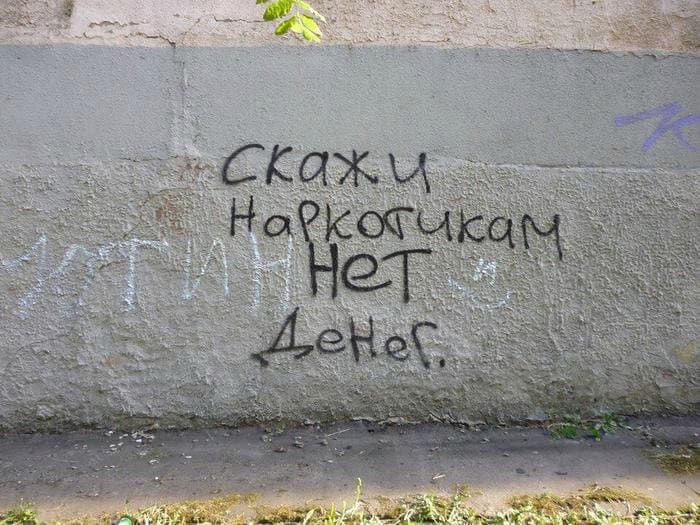 Скажи
Наркотикам
Нет
Денег.